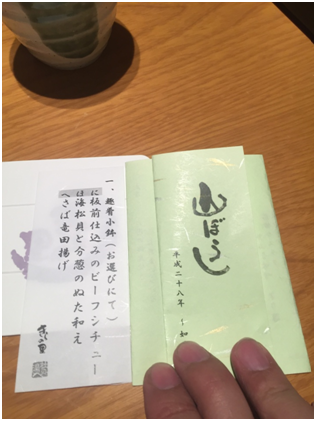 山ぼうし
平成二十八年 如
一、趣肴小鉢(お選びにて)
に板前仕込みのビーフシチュー
は海松貝と分葱のぬた和え
へさば竜田揚げ